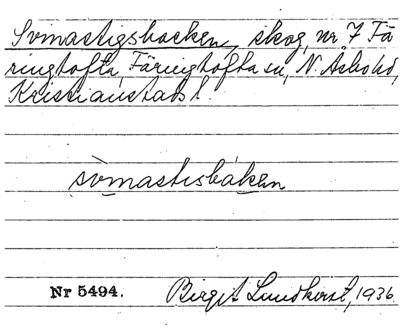 Svinastigsbacken, skog, nr 7 Fä
ringtofta, Färingtofta sn, N. Åsbo hd,
Kristianstads l.
svìnastisbákan
Nr 5494. Birgit Lundkvist, 1936.